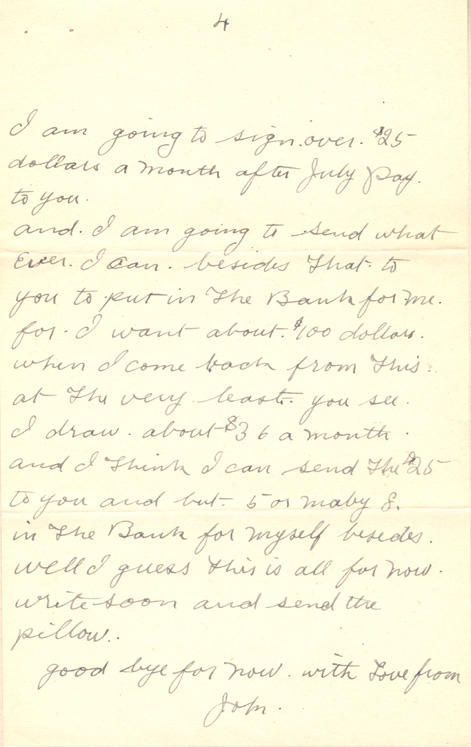 4
I am going to sign.over. $25
dollars a month after July Pay.
to you.
and. I am going to send what
Ever. I can. besides that. to
you to put in the Bank for me.
for. I want about. $100 dollars.
when I come back from this.
at the very least. you see.
I draw. about $36 a month.
and I think I can send the $25
to you and but. 5 or maby 8.
in the Bank for myself besides.
well I guess this is all for now.
write soon and send the
pillow..
good bye for now. with Love from
John.